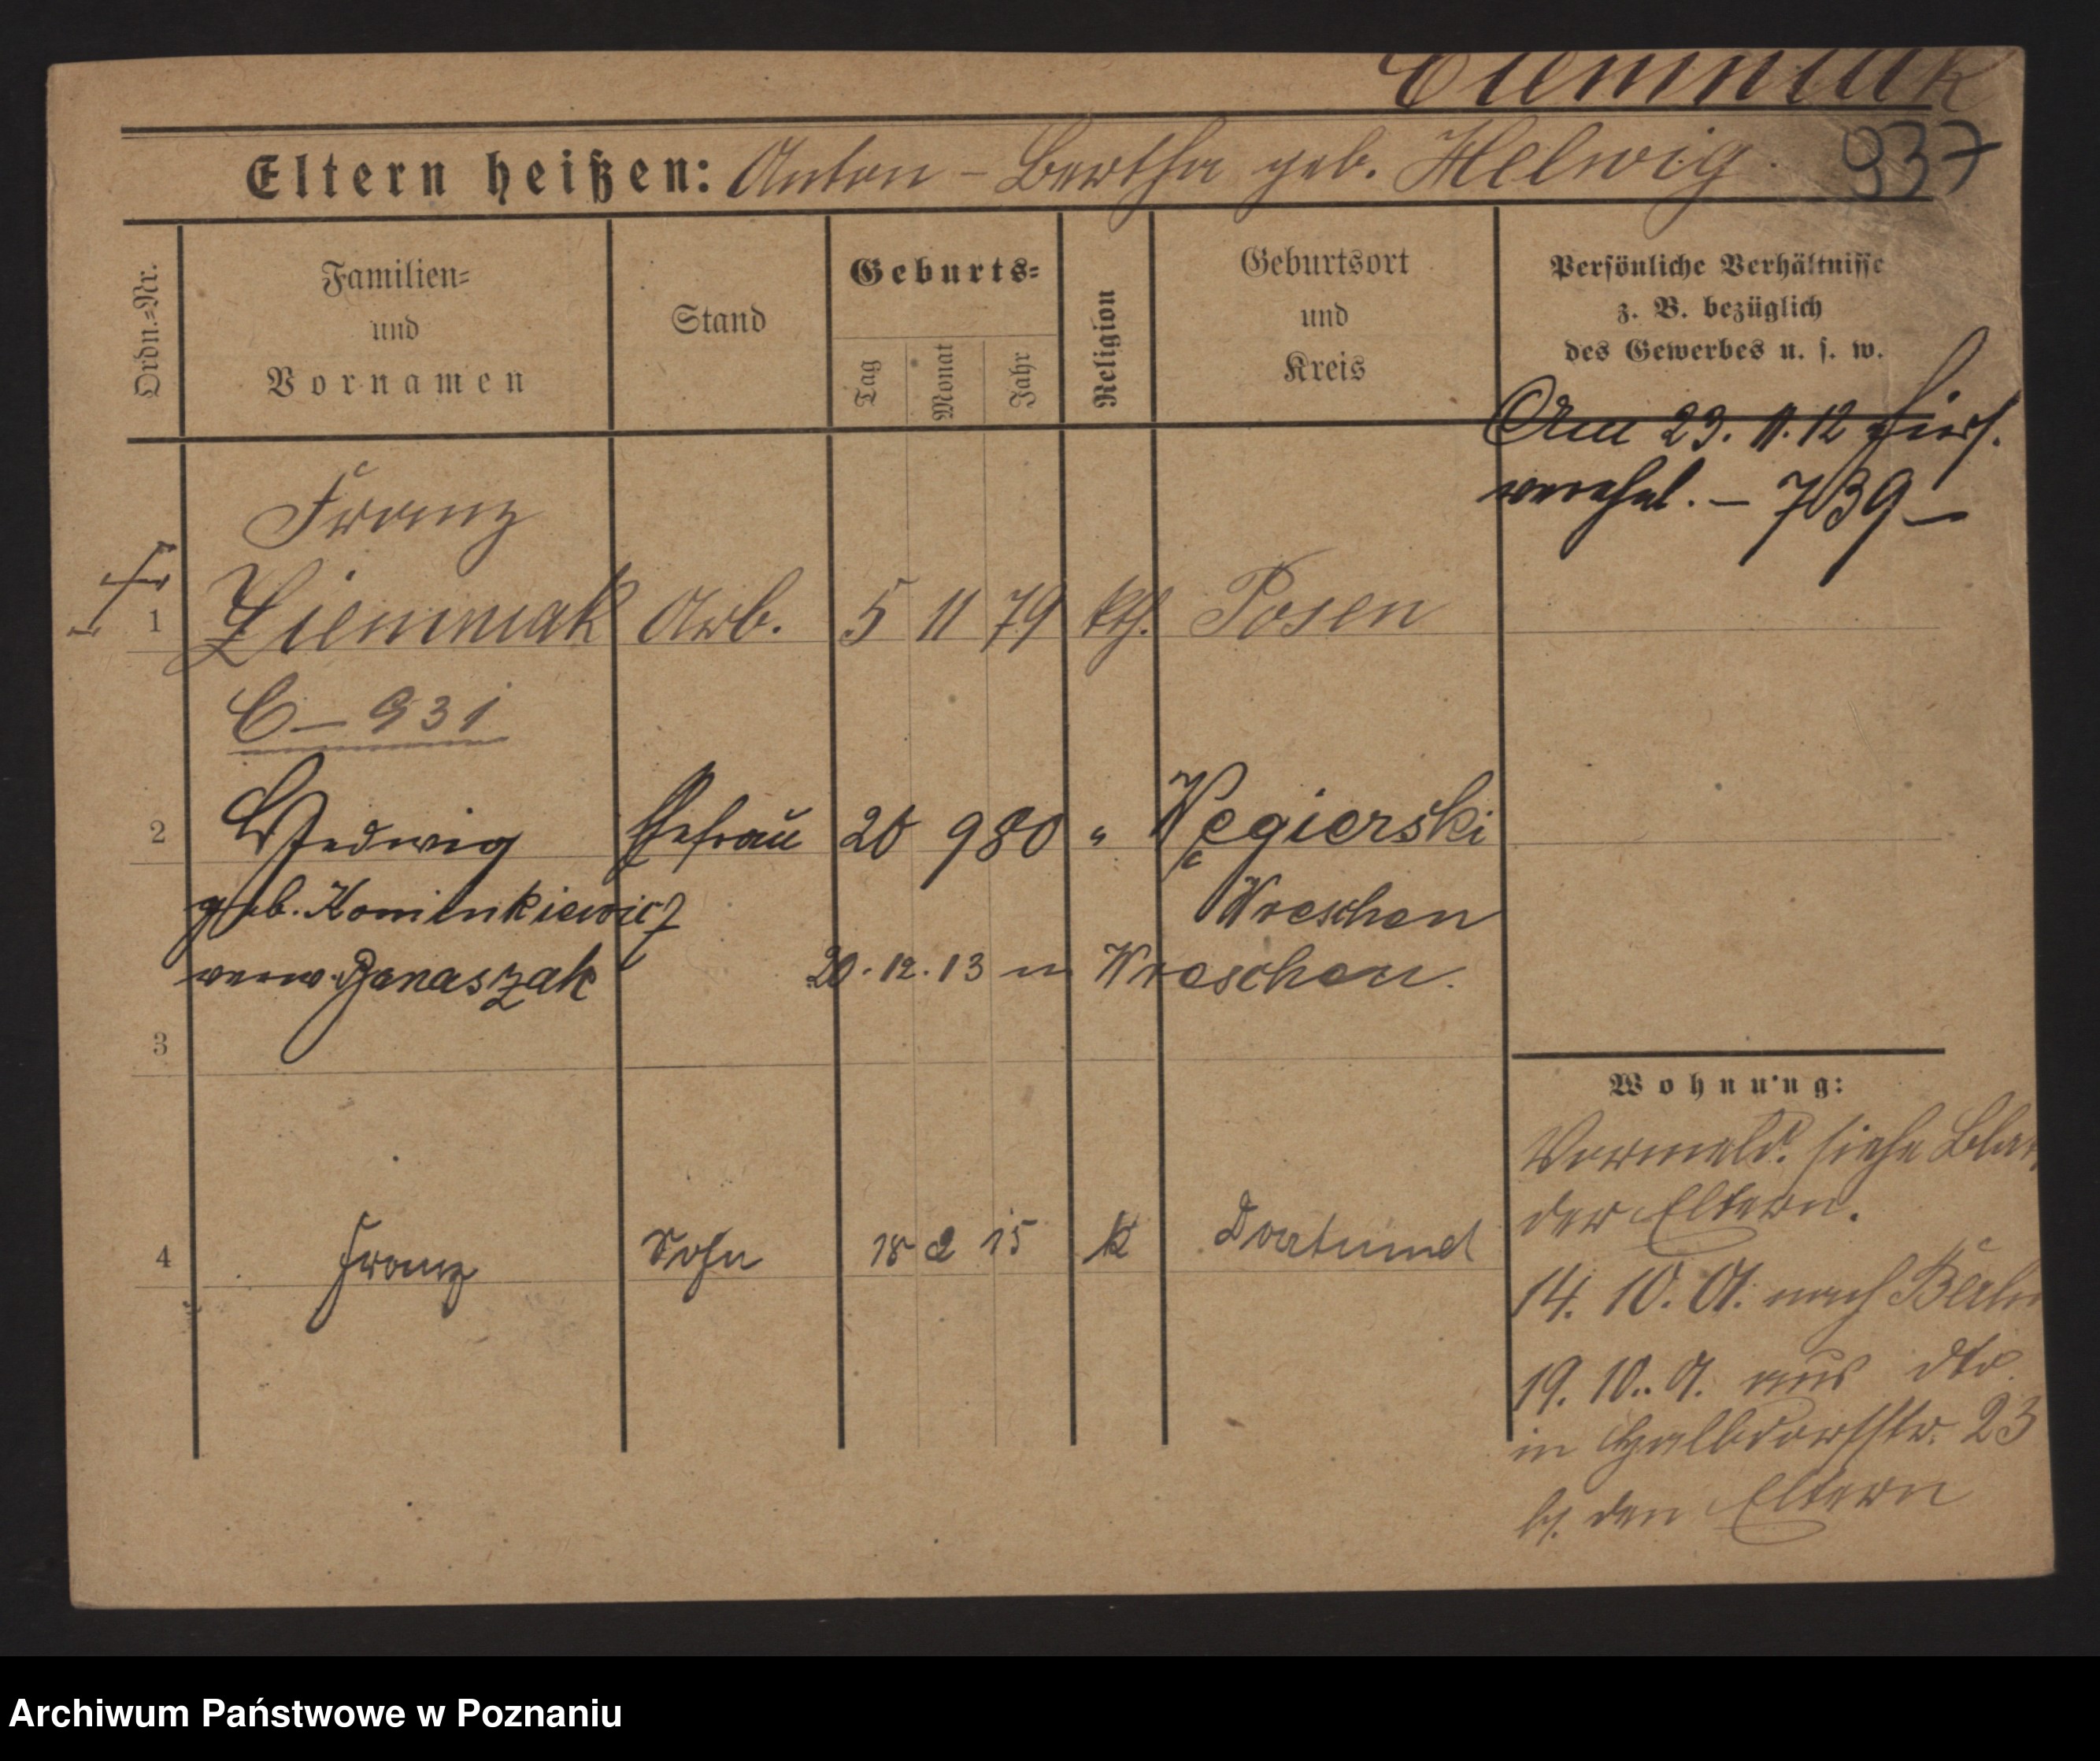 Ciemniak
Eltern heißen: Anton - Bertha geb. Helwig. 937
Ordn.=Nr.
Familien=
und
Vornamen
Stand
Geburts=
Tag
Monat
Jahr
Religion
Geburtsort
und
Kreis
Persönliche Verhältnisse
z. B. bezüglich
des Gewerbes u. s. w.
Am 23. 11. 12 hier
verehel. - 739 -
Franz
1 Ziemniak Arb. 5 11 79 kth. Posen
C - 931
2 Hedwig Ehefrau 20 9 80 " Węgierski
geb. Kominkiewicz Wreschen
verw. Banaszak 20. 12. 13 n Wreschen.
3
Wohnung:
Vormeld. siehe Blatt
der Eltern.
4 Franz Sohn 18 2 15 k Dortmund
14. 10. 01. nach Berlin
19. 10. 01. aus dto.
in Halbdorfstr. 23
b. den Eltern
Archiwum Państwowe w Poznaniu